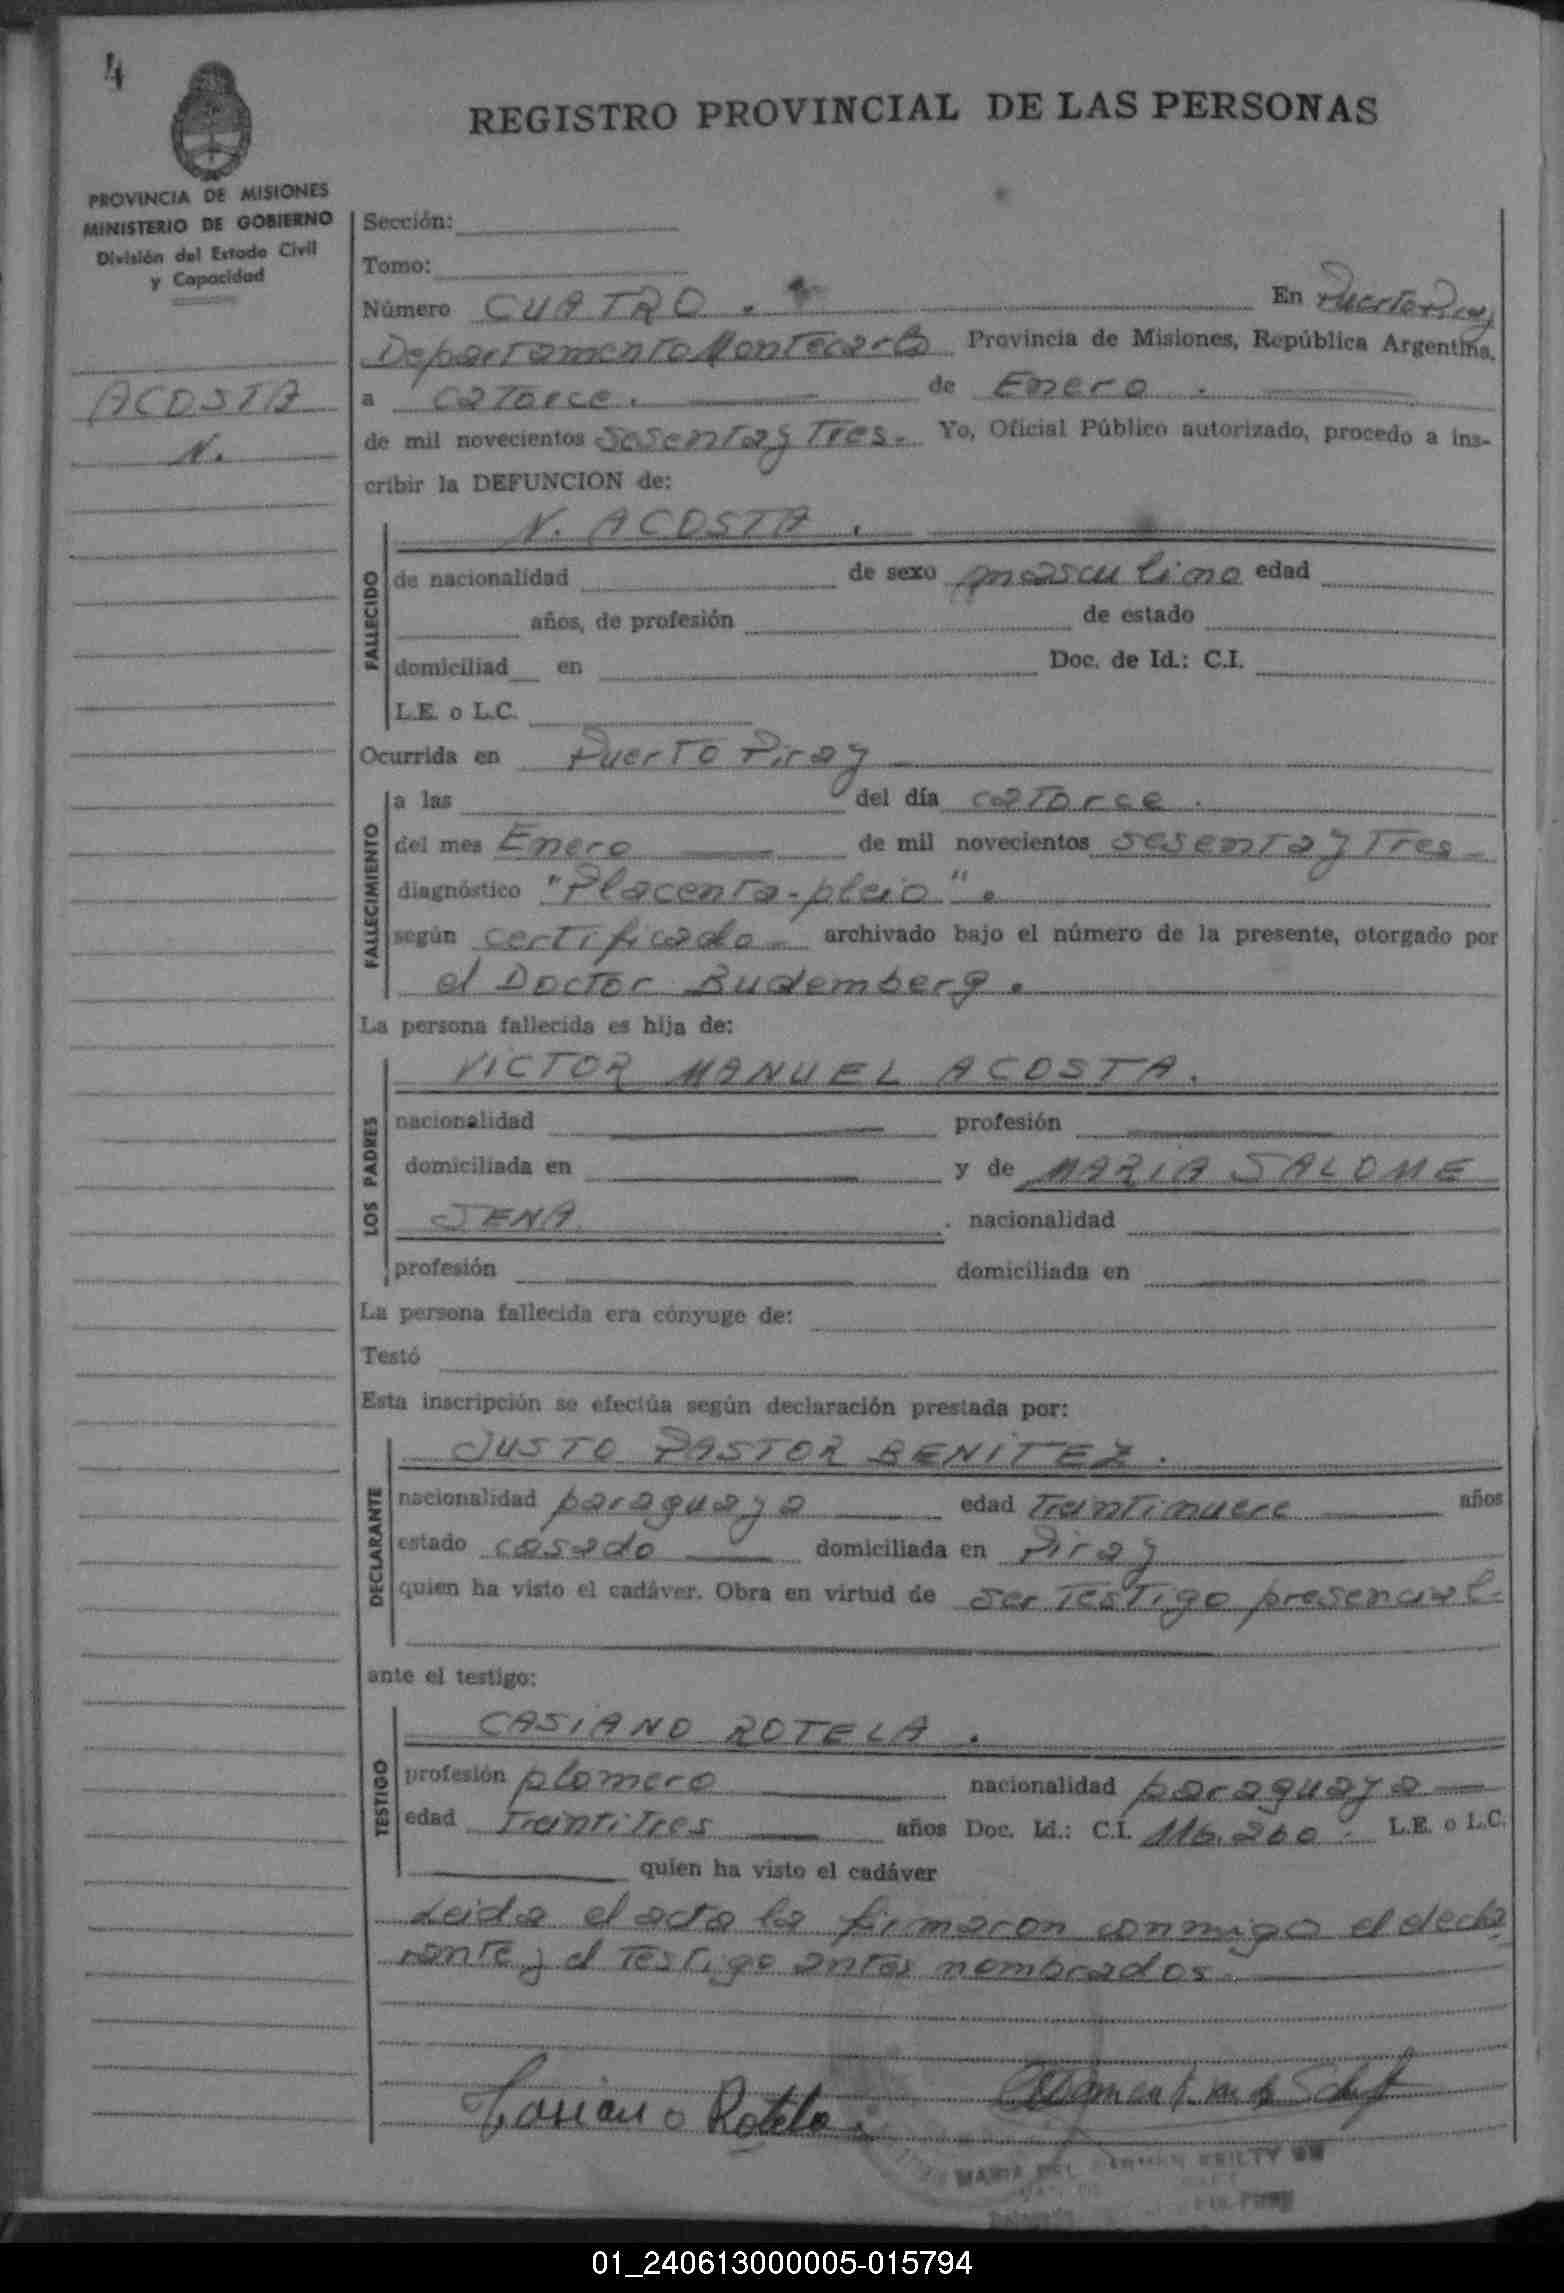 4
REGISTRO PROVINCIAL DE LAS PERSONAS
PROVINCIA DE MISIONES
MINISTERIO DE GOBIERNO
División del Estado Civil
y Capacidad
ACOSTA
N.
Sección:
Tomo:
Número CUATRO. En Puerto Piray
Departamento Montecarlo Provincia de Misiones, República Argentina,
a catorce. de Enero.
de mil novecientos sesenta y Tres. Yo, Oficial Público autorizado, procedo a ins-
cribir la DEFUNCION de:
N. ACOSTA.
FALLECIDO
de nacionalidad de sexo masculino edad
años, de profesión de estado
domiciliad en Doc. de Id.: C.I.
L.E. o L.C.
Ocurrida en Puerto Piray
FALLECIMIENTO
a las del día catorce.
del mes Enero de mil novecientos sesenta y Tres-
diagnóstico "Placenta-pleio".
según certificado- archivado bajo el número de la presente, otorgado por
el Doctor Budemberg.
La persona fallecida es hija de:
LOS PADRES
VICTOR MANUEL ACOSTA.
nacionalidad profesión
domiciliada en y de MARIA SALOME
JENA. nacionalidad
profesión domiciliada en
La persona fallecida era cónyuge de:
Testó
Esta inscripción se efectúa según declaración prestada por:
DECLARANTE
JUSTO PASTOR BENITEZ.
nacionalidad paraguaya edad Treintinueve años
estado casado domiciliada en Piray
quien ha visto el cadáver. Obra en virtud de ser Testigo presencial-
ante el testigo:
TESTIGO
CASIANO ROTELA.
profesión plomero nacionalidad paraguaya
edad Treintitres años Doc. Id.: C.I. 116.260. L.E. o L.C.
quien ha visto el cadáver
Leida el acta la firmaron conmigo el decla
rante y el Testigo antes nombrados.
Casiano Rotela
MARIA DEL CARMEN
01_240613000005-015794